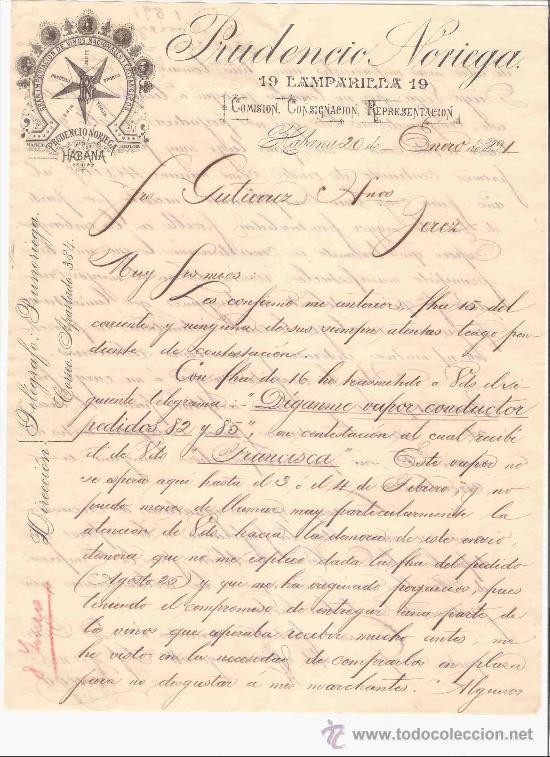 GRAN IMPORTACION DE VINOS NACIONALES Y
PRUDENCIO NORIEGA
HABANA
Prudencio Noriega.
19 LAMPARILLA 19
Comision, Consignacion, Representacion
Habana 20 de Enero de 1891
Sres. Gutierrez Hnos
Jerez
Dirección
Telégrafo: Prunoriega.
Correo: Apartado 384.
Muy Sres mios:
Les confirmo mi anterior, fha 15 del
corriente, y ninguna de sus siempre atentas tengo pen-
diente de contestación.
Con fha de 16, he trasmitido a Vds el si-
guiente telegrama: "Diganme vapor conductor
pedidos 82 y 85", en contestación al cual recibí
el de Vds "Francisca" Este vapor no
se espera aqui hasta el 3 ó el 4 de Febrero, y no
puedo menos de llamar muy particularmente la
atención de Vds hacia la demora de este envio,
demora que no me esplico dada la fha del pedido
(Agosto 25) y que me ha originado perjuicios, pues
teniendo el compromiso de entregar una parte de
los vinos que esperaba recibir mucho antes, me
he visto en la necesidad de comprarlos en plaza
para no desgustar á mis marchantes. Algunos
todocoleccion.net